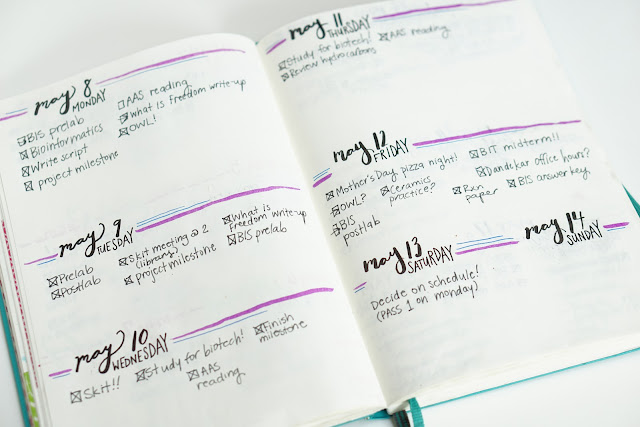 may 8
MONDAY
BIS prelab
Bioinformatics
Write script
project milestone
AAS reading
What is freedom write-up
OWL!
may 9
TUESDAY
Prelab
Postlab
Skit meeting @ 2
(library)
project milestone
What is
freedom write-up
BIS prelab
may 10
WEDNESDAY
Skit!!
Study for biotech!
AAS
reading
Finish
milestone
may 11
THURSDAY
Study for biotech!
Review hydrocarbons
AAS reading
may 12
FRIDAY
Mother's Day pizza night!
OWL?
BIS
postlab
Ceramics
practice?
BIT midterm!!
Dandekar office hours?
Rxn
paper
BIS answer key
may 13
SATURDAY
Decide on schedule!
(PASS 1 on monday)
may 14
SUNDAY